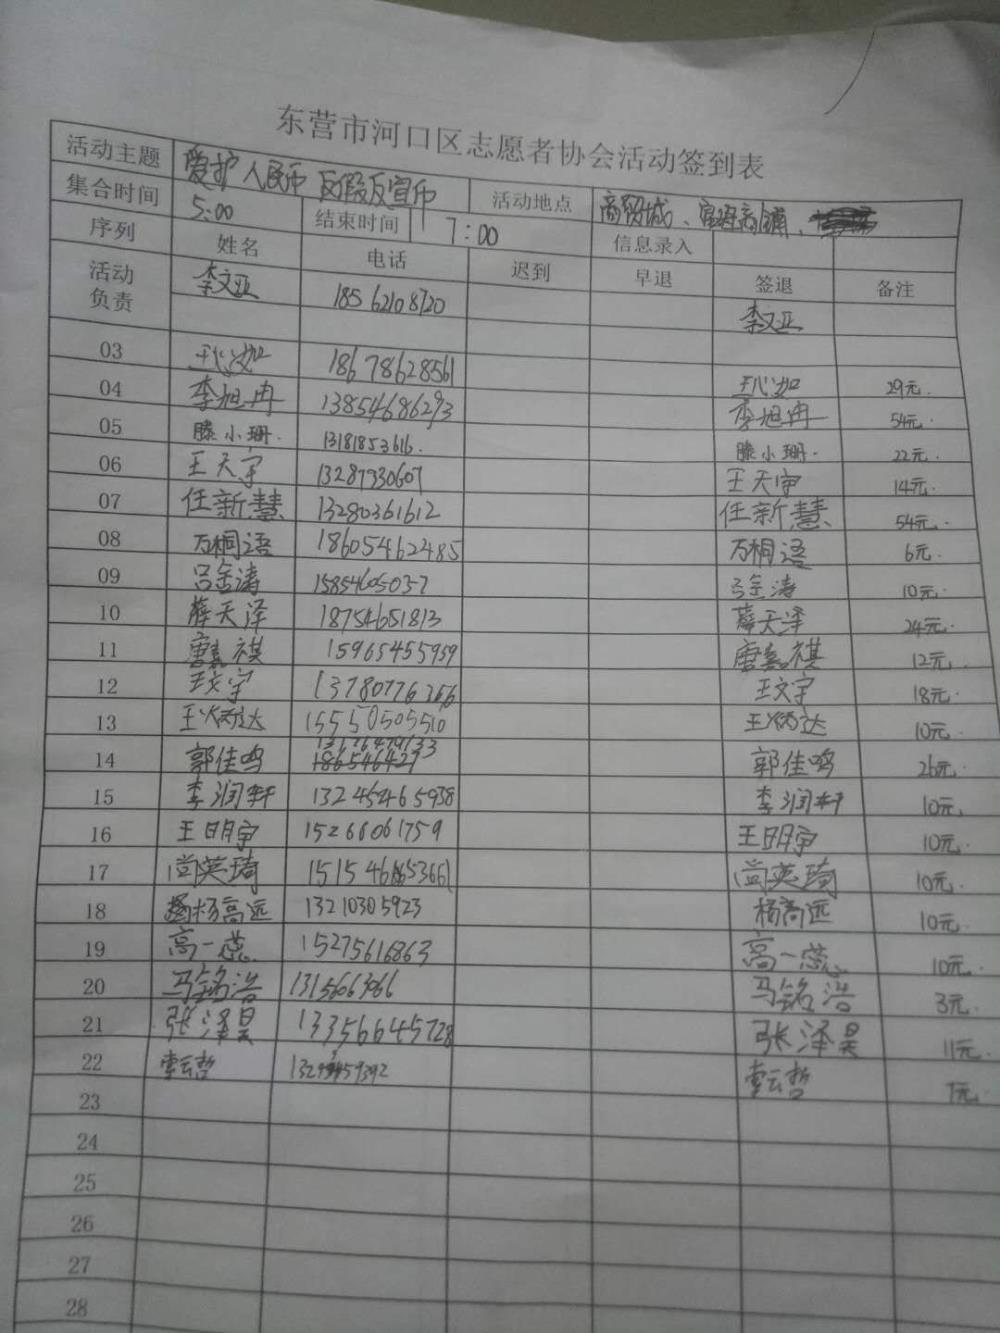 东营市河口区志愿者协会活动签到表
活动主题 爱护人民币 反假反宣币 活动地点 商贸城、
集合时间 5:00 结束时间 17:00 信息录入
序列 姓名 电话 迟到 早退 签退 备注
活动负责 李文亚 18562108720 李文亚
03 王心如 18678628561 王心如 29元.
04 李旭冉 13854686293 李旭冉 54元.
05 滕小珊. 13181853616. 滕小珊. 22元.
06 王天宇 13287330607 王天宇 14元.
07 任新慧 13280361612 任新慧 54元.
08 万桐语 18605462485 万桐语 6元.
09 吕金涛 15854605037 吕金涛 10元.
10 薛天泽 18754651813 薛天泽 24元.
11 唐嘉祺 15965455959 唐嘉祺 12元.
12 王文宇 13780776366 王文宇 18元.
13 王炳达 15550505510 王炳达 10元.
14 郭佳鸣 郭佳鸣 26元.
15 李润轩 13245465938 李润轩 10元.
16 王明宇 15266061759 王明宇 10元.
17 尚英琦 尚英琦 10元.
18 杨高远 13210305923 杨高远 10元.
19 高一蕊 15275616863 高一蕊 10元.
20 马铭浩 马铭浩 3元.
21 张泽昊 13356645728 张泽昊 11元.
22 云哲 云哲 1元.
23
24
25
26
27
28